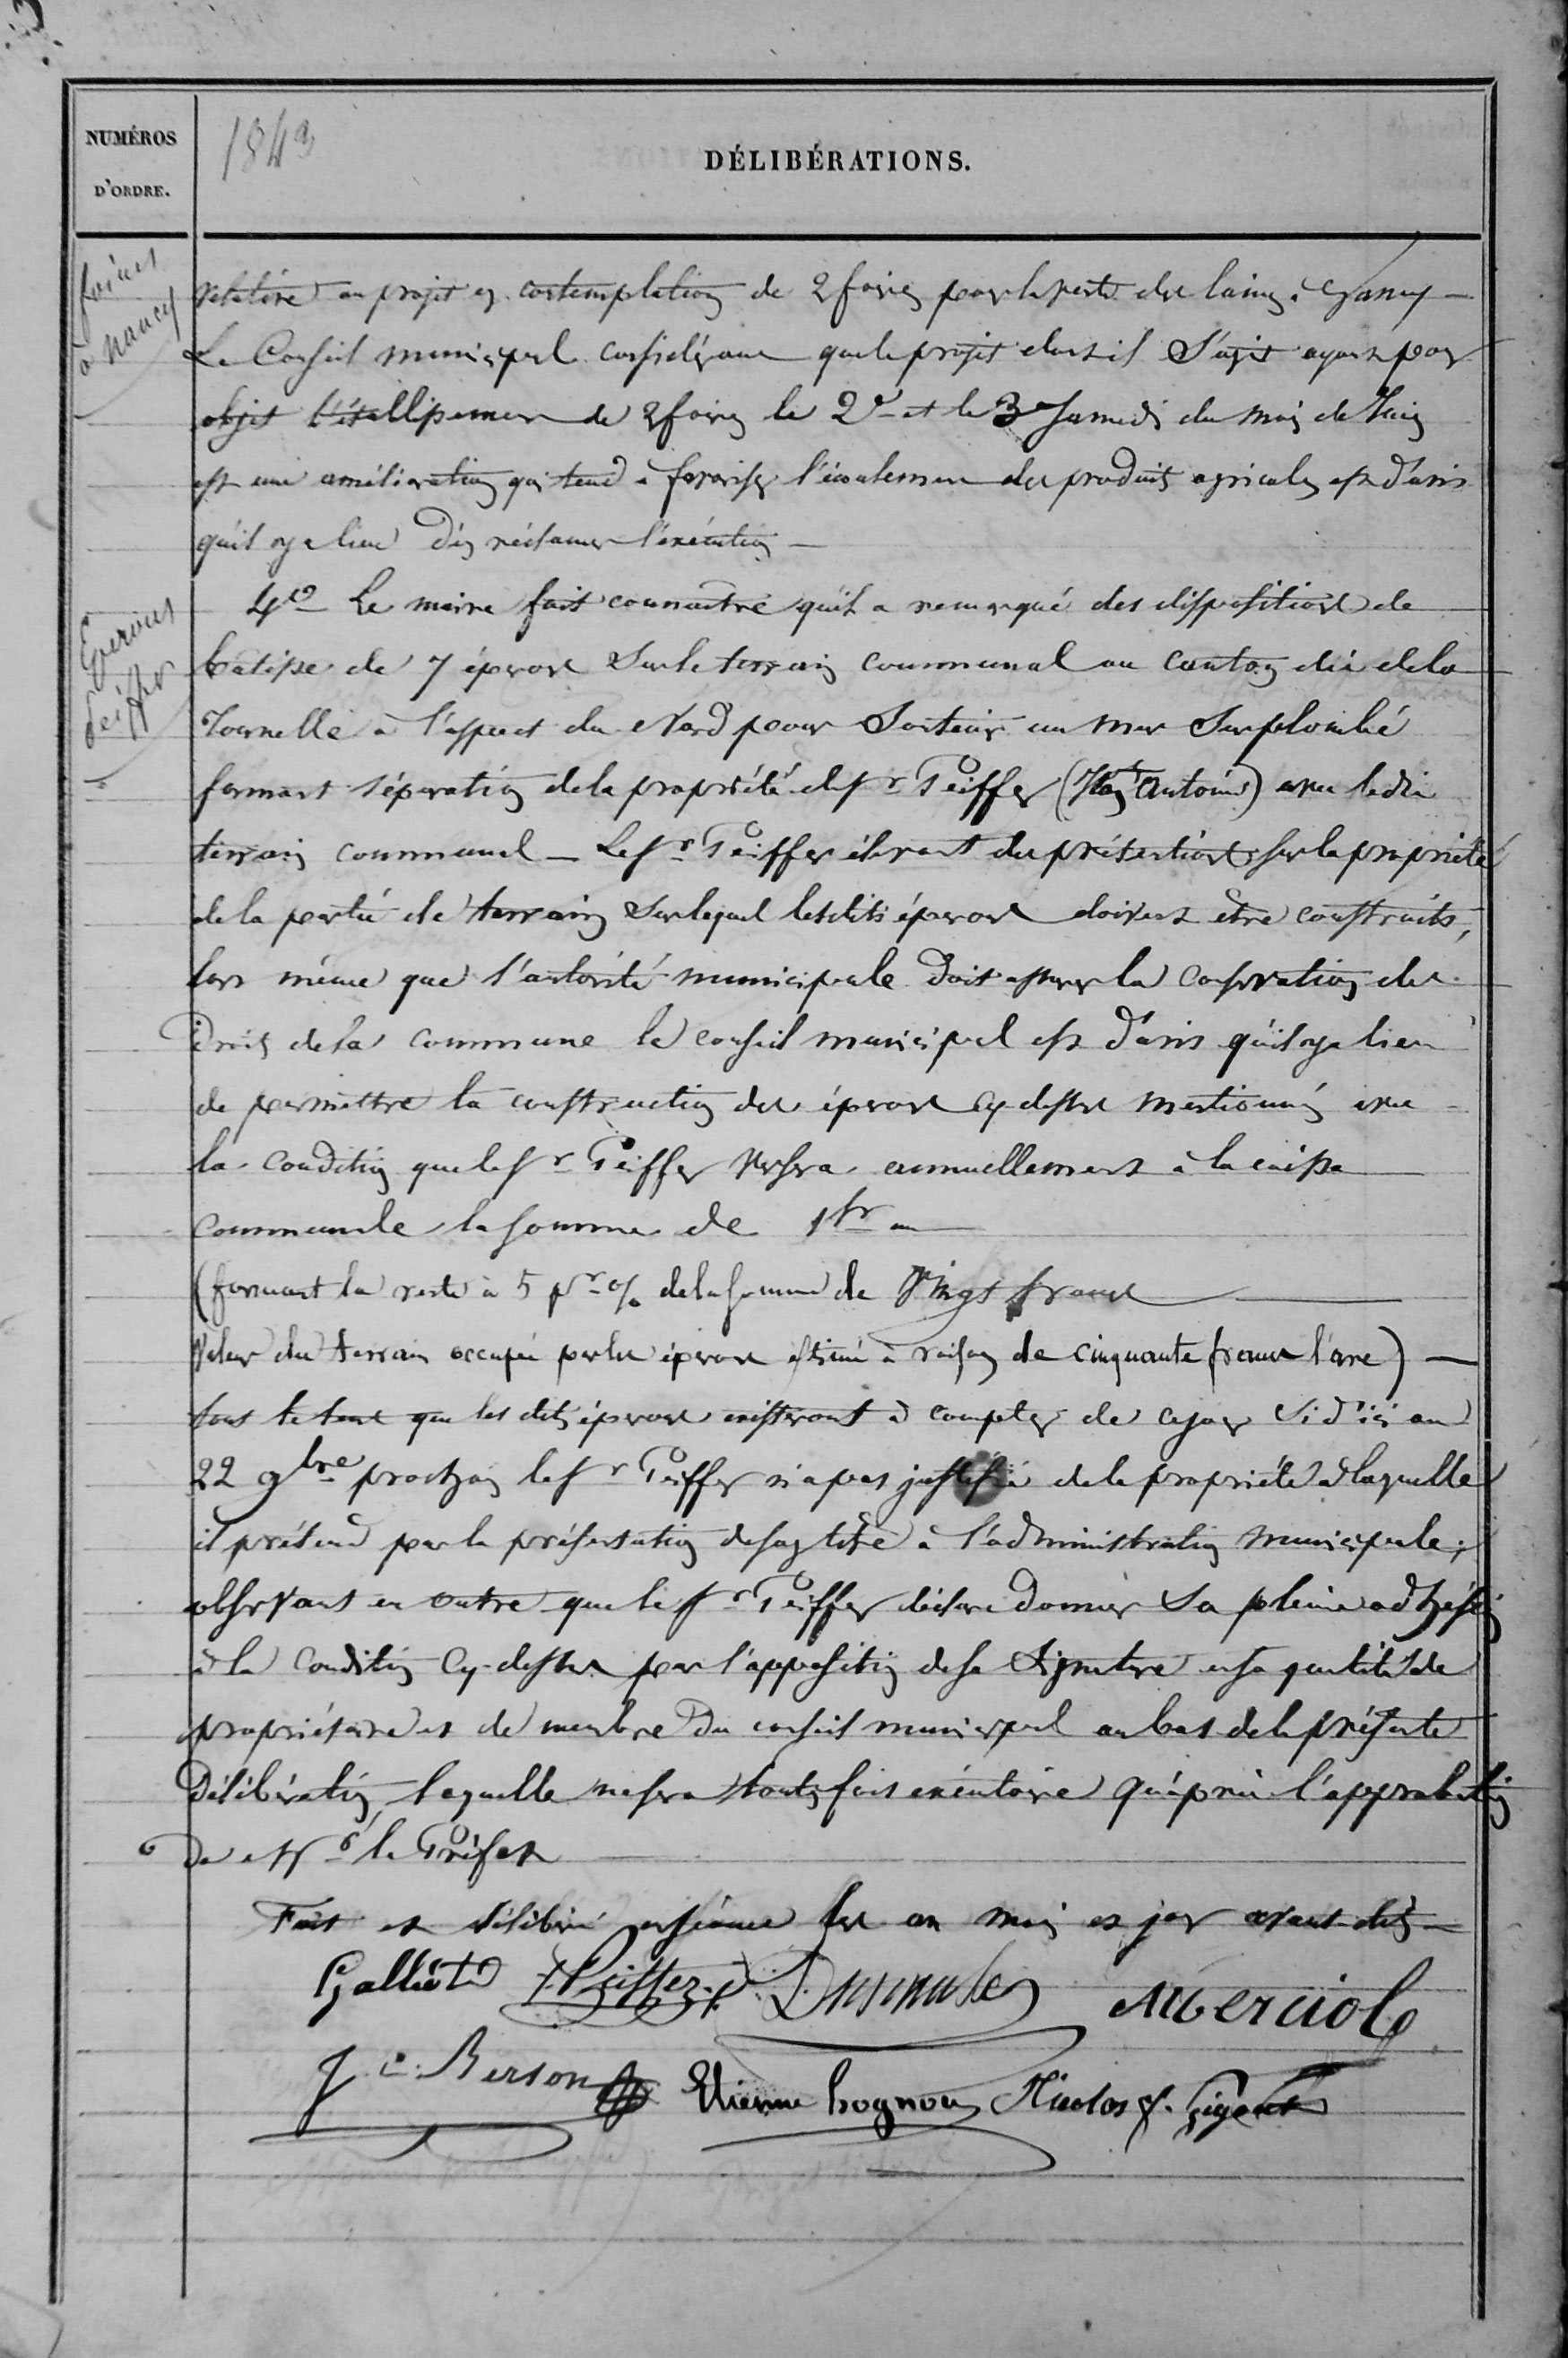 NUMÉROS
D'ORDRE.
1843
DÉLIBÉRATIONS.
foires
a nancy
relative au projet en contemplation de 2 foires pour la vente des laines à Nancy —
Le Conseil municipal considérant que le projet dont il s'agit ayant pour
objet l'établissement de 2 foires le 2e et le 3e Samedi du mois de Juin
est une amélioration qui tend à favoriser l'écoulement des produits agricoles est d'avis
qu'il y a lieu d'en réclamer l'exécution —
Eperons
Peiffer
4o Le maire fait connaitre qu'il a remarqué des dispositions de
batisse de 7 éperons sur le terrain communal au canton dit de la
Tournelle à l'aspect du Nord pour Soutenir un mur Surplombé
formant séparation de la propriété du Sr Peiffer (Antoine) avec ledit
terrain communal — Le Sr Peiffer élevant des prétentions sur la propriété
de la partie de terrain sur lequel lesdits éperons doivent être construits,
lors même que l'autorité municipale doit assurer la conservation des
droits de la commune le conseil municipal est d'avis qu'il y a lieu
de permettre la construction des éperons cy-dessus mentionnés avec
la condition que le Sr Peiffer versera annuellement à la caisse
communale la somme de 1 fr
(formant la rente à 5 pr % de la somme de Vingt francs
valeur du terrain occupée par les éperons estimé à raison de cinquante francs l'are) —
tout le tems que les dits éperons existeront à compter de ce jour si d'ici au
22 9bre prochain le Sr Peiffer n'a pas justifié de la propriété à laquelle
il prétend par la présentation de son titre à l'administration municipale;
observant en outre que le Sr Peiffer déclare donner sa pleine adhésion
à la condition cy-dessus par l'apposition de sa signature en sa qualité de
propriétaire et de membre du conseil municipal au bas de la présente
délibération, laquelle ne sera toutefois exécutoire qu'après l'approbation
de Mr le Préfet
Fait et délibéré en séance les an mois et jour avant-dits —
Galliot Peiffer AUberciol
J C Berson Etienne hognon Nicolas